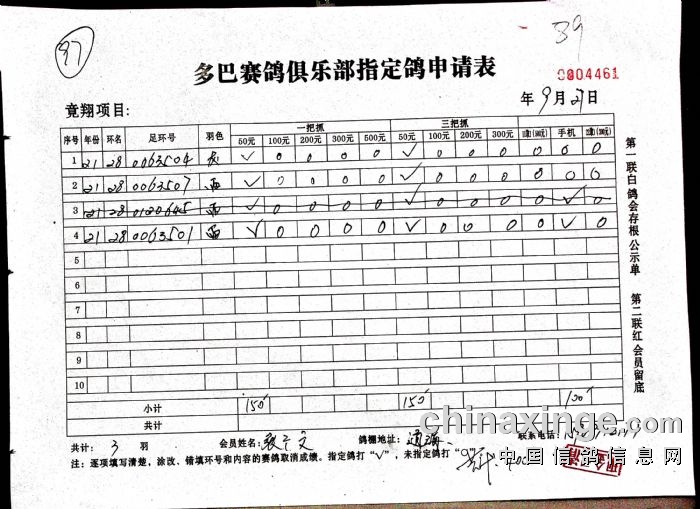 97
39
多巴赛鸽俱乐部指定鸽申请表
0804461
年9月27日
竟翔项目:
序号 年份 环名 足环号 羽色 一把抓 三把抓
50元 100元 200元 300元 500元 50元 100元 200元 300元 手机
1 21 28 0063504 灰 ✓ 0 0 0 0 ✓ 0 0 0 0 0 0
2 21 28 0063507 雨 ✓ 0 0 0 0 ✓ 0 0 0 0 0 0
3 21 28 0120645 雨 ✓ 0 0 0 0 ✓ 0 0 0 0 ✓ 0
4 21 28 0063501 雨 ✓ 0 0 0 0 ✓ 0 0 0 0 ✓ 0
5
6
7
8
9
10
小计 150 150 100
共计
共计: 3 羽 会员姓名: 鸽棚地址: 联系电话:
注：逐项填写清楚，涂改、错填环号和内容的赛鸽取消成绩。指定鸽打“√”，未指定鸽打“0”
第一联白鸽会存根公示单
第二联红会员留底
chinaxinge.com
中国信鸽信息网